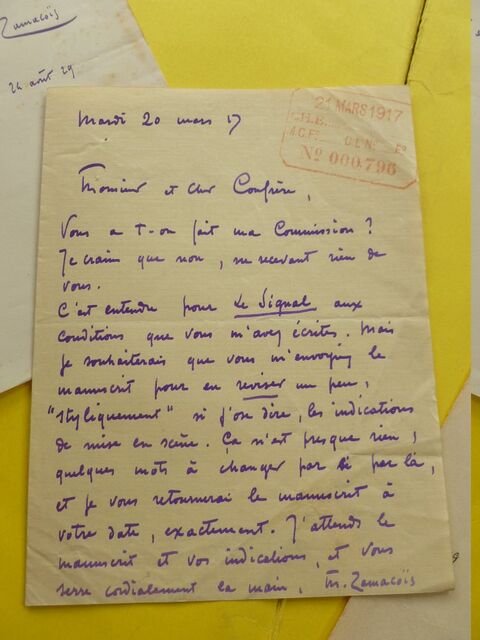 Zamacoïs
24 août 29
21 MARS 1917
C.H.B.
A.C.F. CL. N° F°
N° 000.796
Mardi 20 mars 17
Monsieur et cher Confrère,
Vous a t-on fait ma Commission ?
Je crains que non, ne recevant rien de
vous.
C'est entendu pour Le Signal aux
conditions que vous m'avez écrites. Mais
je souhaiterais que vous m'envoyiez le
manuscrit pour en reviser un peu,
"styliquement" si j'ose dire, les indications
de mise en scène. Ça n'est presque rien,
quelques mots à changer par ci par là,
et je vous retournerai le manuscrit à
votre date, exactement. J'attends le
manuscrit et vos indications, et vous
serre cordialement la main, M. Zamacoïs